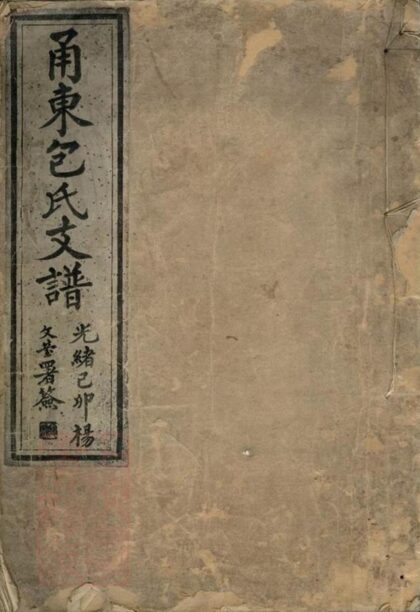 甬東包氏支譜
光緒己卯楊
文莹署簽